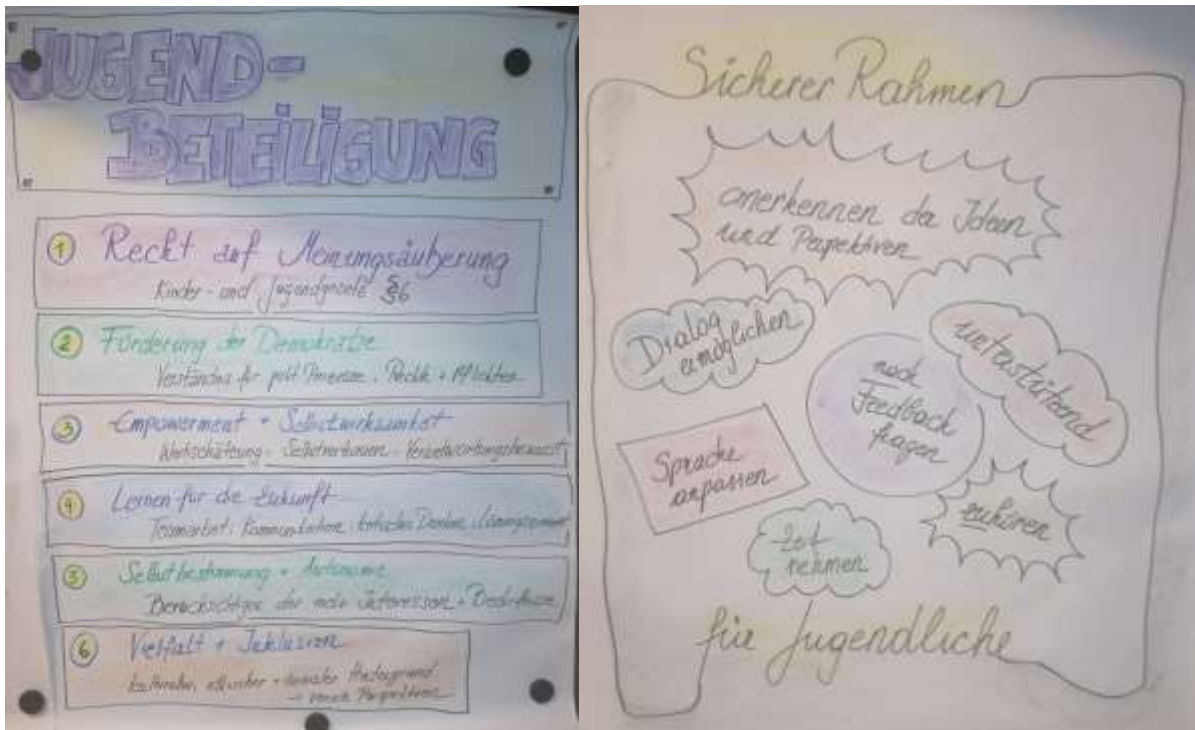 JUGEND-
BETEILIGUNG
1 Recht auf Meinungsäußerung
Kinder- und Jugendgesetz §6
2 Förderung der Demokratie
Verständnis für polit. Prozesse, Rechte + Pflichten
3 Empowerment + Selbstwirksamkeit
Wertschätzung - Selbstvertrauen - Verantwortungsbewusst
4 Lernen für die Zukunft
Teamarbeit, Kommunikation, kritisches Denken,
5 Selbstbestimmung + Autonomie
Berücksichtigen der Interessen + Bedürfnisse
6 Vielfalt + Inklusion
kultureller, ethnischer + sozialer Hintergrund
→ Perspektiven
Sicherer Rahmen
anerkennen der Ideen
und Perspektiven
Dialog
ermöglichen
unterstützend
nach
Feedback
fragen
Sprache
anpassen
zuhören
Zeit
nehmen
für Jugendliche